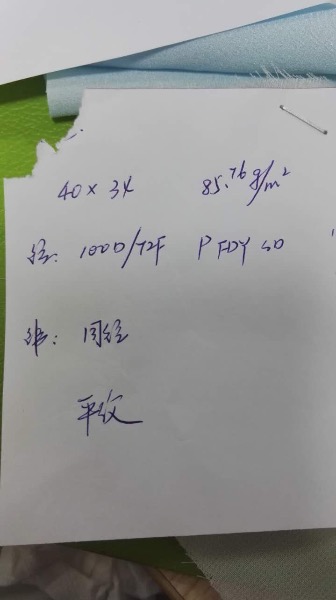 40×34 85.76g/m²
经: 100D/72F P FDY SD
纬: 同经
平纹